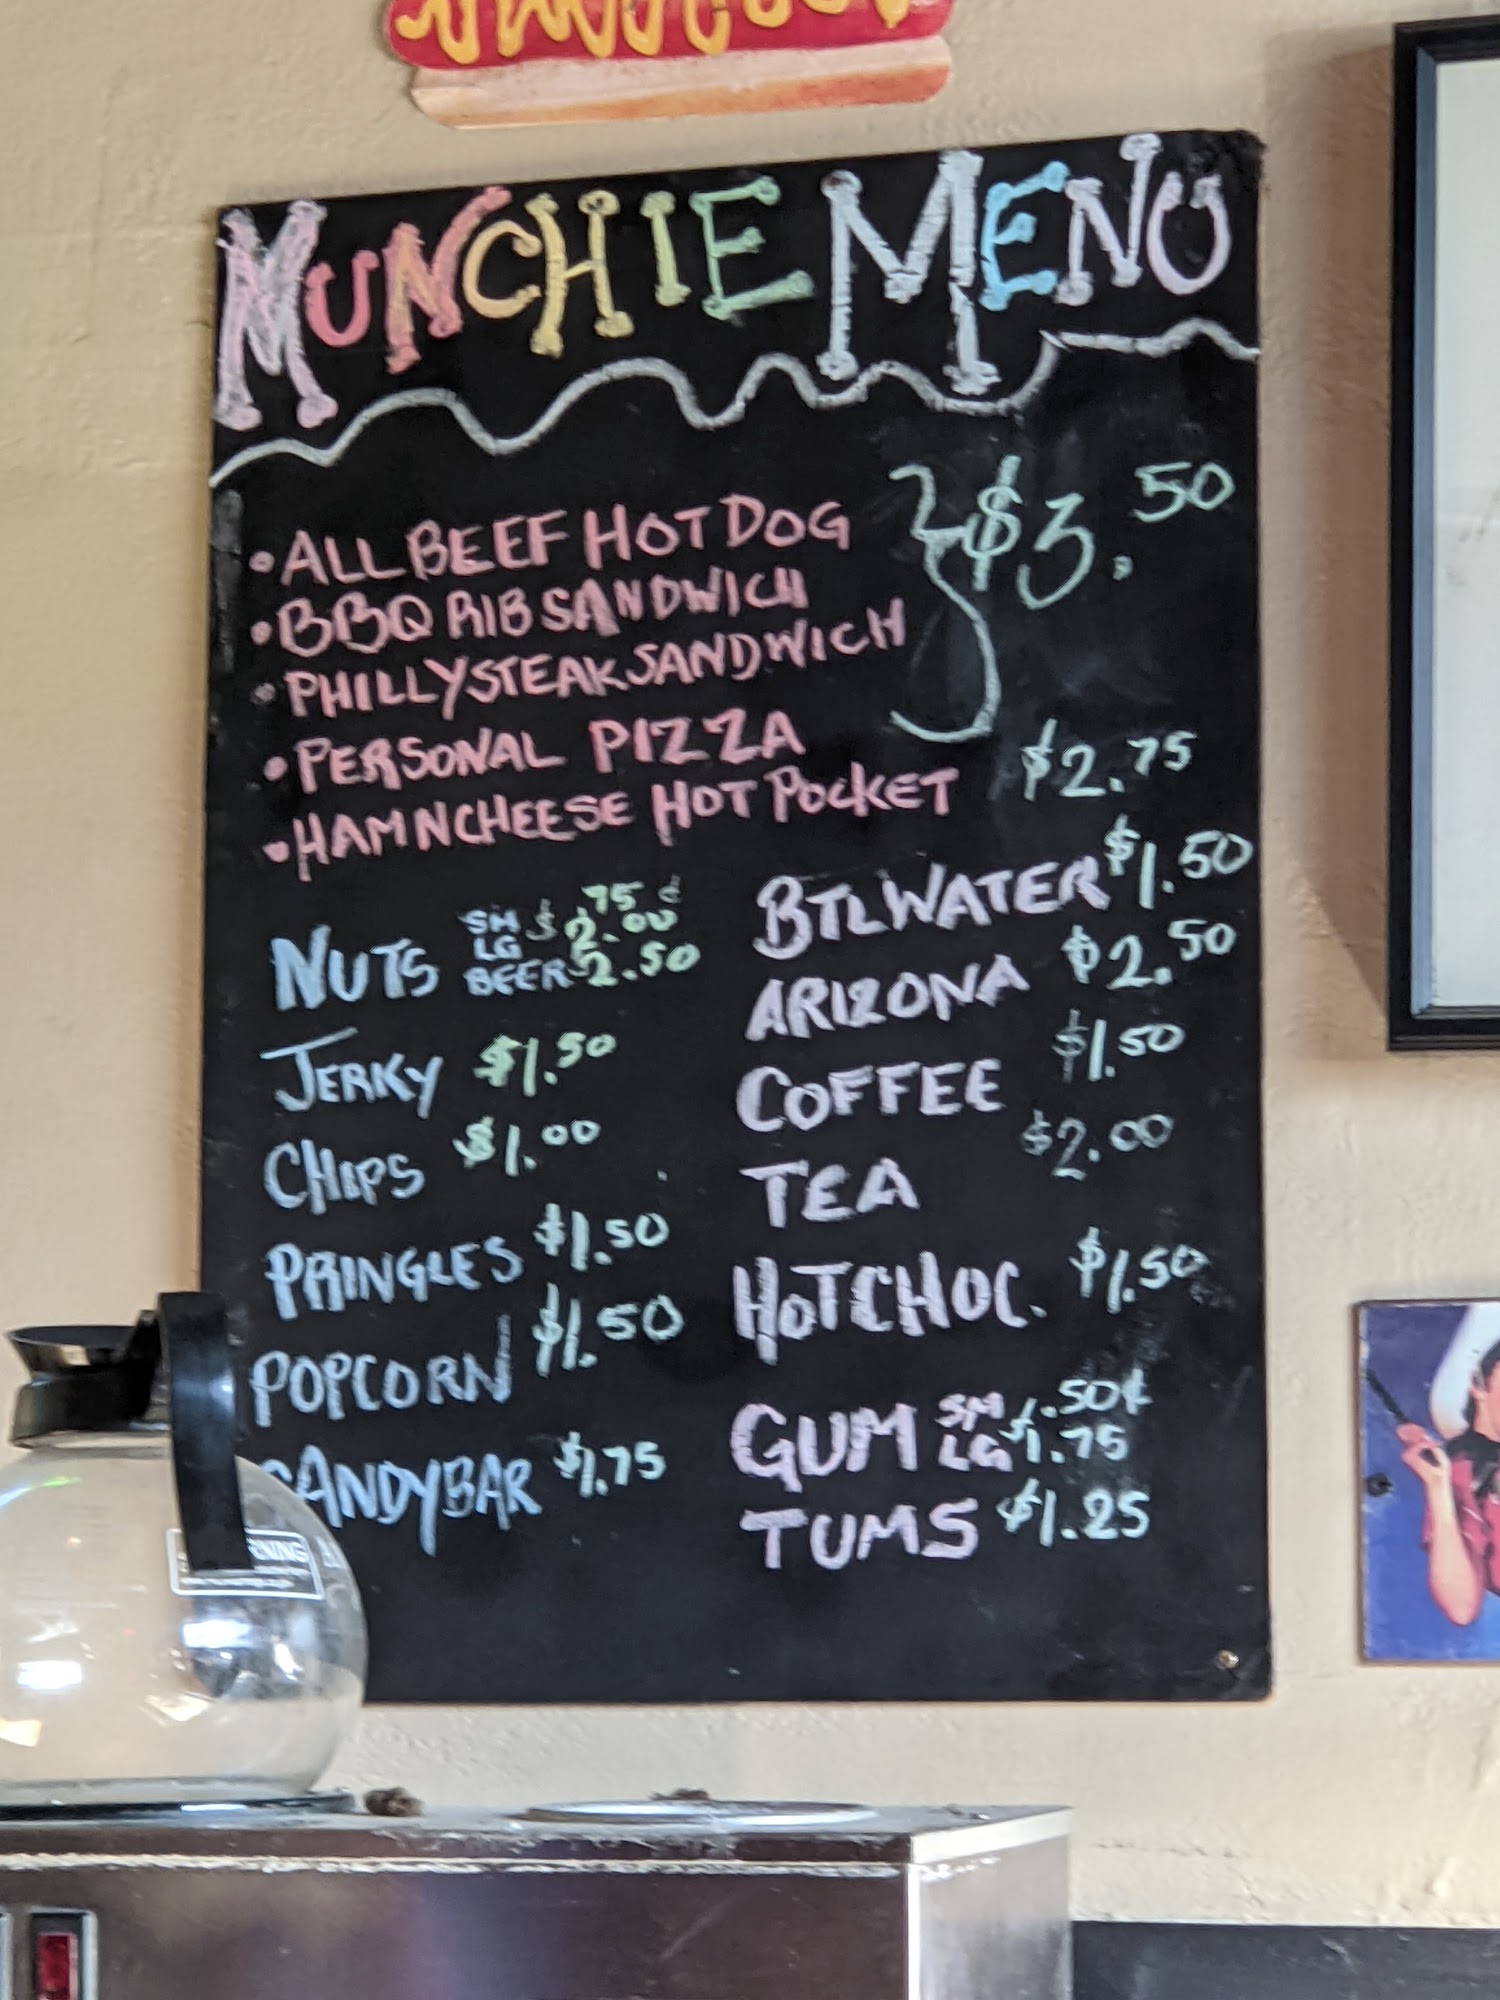 MUNCHIE MENU
• ALL BEEF HOT DOG
• BBQ RIB SANDWICH
• PHILLY STEAK SANDWICH
• PERSONAL PIZZA
$3.50
• HAM N CHEESE HOT POCKET $2.75
NUTS SM $ .75¢
LG $2.00
BEER 2.50
JERKY $1.50
CHIPS $1.00
PRINGLES $1.50
POPCORN $1.50
CANDYBAR $1.75
BTL WATER $1.50
ARIZONA $2.50
COFFEE $1.50
TEA $2.00
HOT CHOC. $1.50
GUM SM $.50¢
LG $1.75
TUMS $1.25